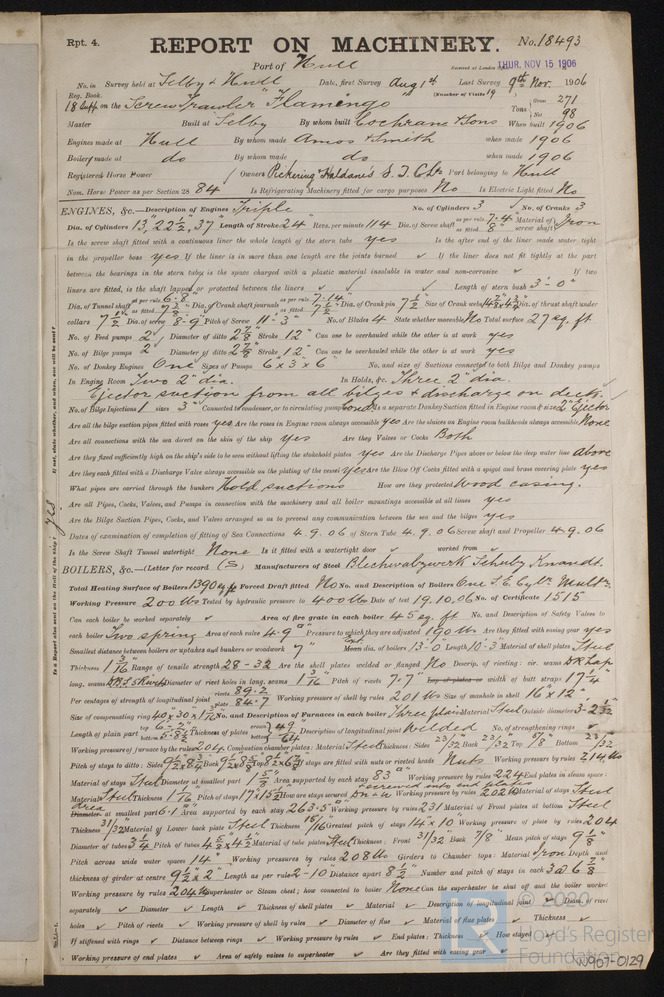 Rpt. 4. REPORT ON MACHINERY. No. 18493
Port of Hull Received at London THUR. NOV 15 1906
No. in Survey held at Selby & Hull Date, first Survey Aug 1st Last Survey 9th Nov. 1906
Reg. Book. (Number of Visits 19
18 Supp on the Screw Trawler "Flamingo" Tons { Gross 271 Net 98
Master Built at Selby By whom built Cochrane & Sons When built 1906
Engines made at Hull By whom made Amos & Smith when made 1906
Boilers made at do By whom made do when made 1906
Registered Horse Power Owners Pickering & Haldanes S. T. Co Ltd Port belonging to Hull
Nom. Horse Power as per Section 28 84 Is Refrigerating Machinery fitted for cargo purposes No Is Electric Light fitted No
ENGINES, &c.—Description of Engines Triple No. of Cylinders 3 No. of Cranks 3
Dia. of Cylinders 13, 22½, 37" Length of Stroke 24" Revs. per minute 114 Dia. of Screw shaft as per rule 7.4 as fitted 8" Material of screw shaft Iron
Is the screw shaft fitted with a continuous liner the whole length of the stern tube yes Is the after end of the liner made water tight
in the propeller boss yes If the liner is in more than one length are the joints burned ✓ If the liner does not fit tightly at the part
between the bearings in the stern tube is the space charged with a plastic material insoluble in water and non-corrosive ✓ If two
liners are fitted, is the shaft lapped or protected between the liners ✓ Length of stern bush 3'-0"
Dia. of Tunnel shaft as per rule 6.8" as fitted 7⅜" Dia. of Crank shaft journals as per rule 7.14 as fitted 7½" Dia. of Crank pin 7½" Size of Crank webs Dia. of thrust shaft under
collars 7½" Dia. of screw 8-9" Pitch of Screw 11-3" No. of Blades 4 State whether moveable No Total surface 27 sq. ft
No. of Feed pumps 2 Diameter of ditto 2⅞ Stroke 12" Can one be overhauled while the other is at work yes
No. of Bilge pumps 2 Diameter of ditto 2⅞ Stroke 12" Can one be overhauled while the other is at work yes
No. of Donkey Engines One Sizes of Pumps 6" x 3" x 6" No. and size of Suctions connected to both Bilge and Donkey pumps
In Engine Room Two 2" dia. In Holds, &c. Three 2" dia.
Ejector suction from all bilges & discharge on deck.
No. of Bilge Injections 1 sizes 3" Connected to condenser, or to circulating pump Cond. Is a separate Donkey Suction fitted in Engine room & size 2" Ejector
Are all the bilge suction pipes fitted with roses yes Are the roses in Engine room always accessible yes Are the sluices on Engine room bulkheads always accessible None
Are all connections with the sea direct on the skin of the ship yes Are they Valves or Cocks Both
Are they fixed sufficiently high on the ship's side to be seen without lifting the stokehold plates yes Are the Discharge Pipes above or below the deep water line above
Are they each fitted with a Discharge Valve always accessible on the plating of the vessel yes Are the Blow Off Cocks fitted with a spigot and brass covering plate yes
What pipes are carried through the bunkers Hold suctions How are they protected Wood casing.
Are all Pipes, Cocks, Valves, and Pumps in connection with the machinery and all boiler mountings accessible at all times yes
Are the Bilge Suction Pipes, Cocks, and Valves arranged so as to prevent any communication between the sea and the bilges yes
Dates of examination of completion of fitting of Sea Connections 4.9.06 of Stern Tube 4.9.06 Screw shaft and Propeller 4.9.06
Is the Screw Shaft Tunnel watertight None Is it fitted with a watertight door ✓ worked from ✓
BOILERS, &c.—(Letter for record (S) Manufacturers of Steel Blechwalzwerk Schulz Knaudt.
Total Heating Surface of Boilers 1390 sq ft Forced Draft fitted No No. and Description of Boilers One S.E. Cylr. Multr.
Working Pressure 200 lbs Tested by hydraulic pressure to 400 lbs Date of test 19.10.06 No. of Certificate 1515
Can each boiler be worked separately ✓ Area of fire grate in each boiler 45 sq. ft No. and Description of Safety Valves to
each boiler Two spring Area of each valve 4.9" Pressure to which they are adjusted 190 lbs Are they fitted with easing gear yes
Smallest distance between boilers or uptakes and bunkers or woodwork 7" Mean dia. of boilers 13'-0 Length 10-3 Material of shell plates Steel
Thickness 1 3/16 Range of tensile strength 28-32 Are the shell plates welded or flanged No Descrip. of riveting: cir. seams DR Lap
long. seams D.B.S. 5 Rivets Diameter of rivet holes in long. seams 1 3/16 Pitch of rivets 7.7" Lap of plates or width of butt straps 17¼"
Per centages of strength of longitudinal joint rivets 89.2 plate 84.7 Working pressure of shell by rules 201 lbs Size of manhole in shell 16" x 12"
Size of compensating ring 40 x 30 x 1 3/16 No. and Description of Furnaces in each boiler Three plain Material Steel Outside diameter
Length of plain part top bottom Thickness of plates crown bottom 49/64 Description of longitudinal joint Welded No. of strengthening rings ✓
Working pressure of furnace by the rules 204 Combustion chamber plates: Material Steel Thickness: Sides 23/32 Back 23/32 Top 5/8 Bottom 23/32
Pitch of stays to ditto: Sides Back Top If stays are fitted with nuts or riveted heads Nuts Working pressure by rules 214 lbs
Material of stays Steel Diameter at smallest part Area supported by each stay 83" Working pressure by rules 224 End plates in steam space:
Material Steel Thickness 1 1/16 Pitch of stays 17 x 15½ How are stays secured Working pressure by rules 202 lbs Material of stays Steel
Area Diameter at smallest part 6.1 Area supported by each stay 263.5 Working pressure by rules 231 Material of Front plates at bottom Steel
Thickness 31/32 Material of Lower back plate Steel Thickness 15/16 Greatest pitch of stays 14 x 10 Working pressure of plate by rules 204
Diameter of tubes 3¼ Pitch of tubes Material of tube plates Steel Thickness: Front 31/32 Back 7/8 Mean pitch of stays 9⅛
Pitch across wide water spaces 14" Working pressures by rules 208 lbs Girders to Chamber tops: Material Iron Depth and
thickness of girder at centre 9½ x 2" Length as per rule 2-10 Distance apart 8½ Number and pitch of stays in each 3 @ 6⅞
Working pressure by rules 204 lbs Superheater or Steam chest; how connected to boiler None Can the superheater be shut off and the boiler worked
separately ✓ Diameter ✓ Length ✓ Thickness of shell plates ✓ Material ✓ Description of longitudinal joint ✓ Diam. of rivet
holes ✓ Pitch of rivets ✓ Working pressure of shell by rules ✓ Diameter of flue ✓ Material of flue plates ✓ Thickness ✓
If stiffened with rings ✓ Distance between rings ✓ Working pressure by rules ✓ End plates: Thickness ✓ How stayed ✓
Working pressure of end plates ✓ Area of safety valves to superheater ✓ Are they fitted with easing gear ✓
Is a Report also sent on the Hull of the Ship? yes
If not, state whether, and when, one will be sent?
© 2020
Lloyd's Register
Foundation
W907-0129